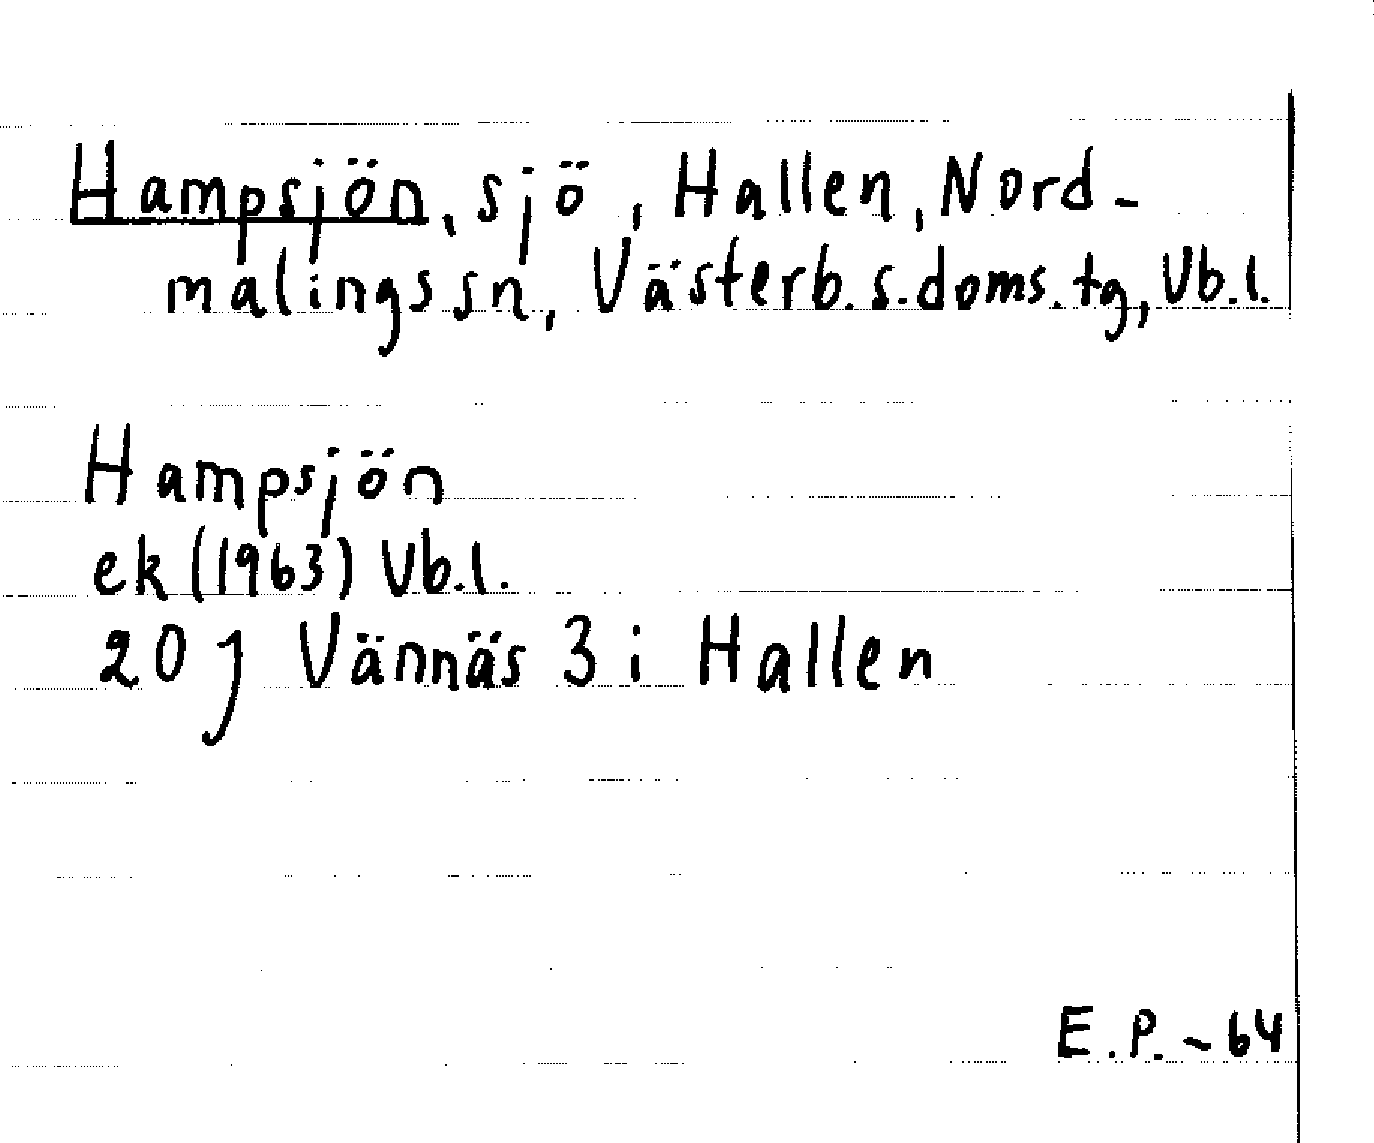 Hampsjön, sjö, Hallen, Nord-
malings sn, Västerb. s. doms. tg, Vb. l.
Hampsjön
ek (1963) Vb. l.
20 j Vännäs 3 i Hallen
E. P. - 64